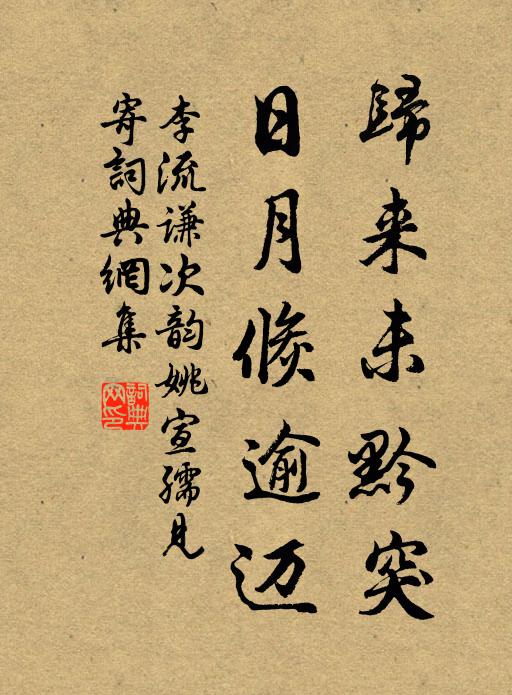 歸来未黔突
日月倐逾迈
李流谦次韵姚宣孺见
寄詞典網集
詞典網印